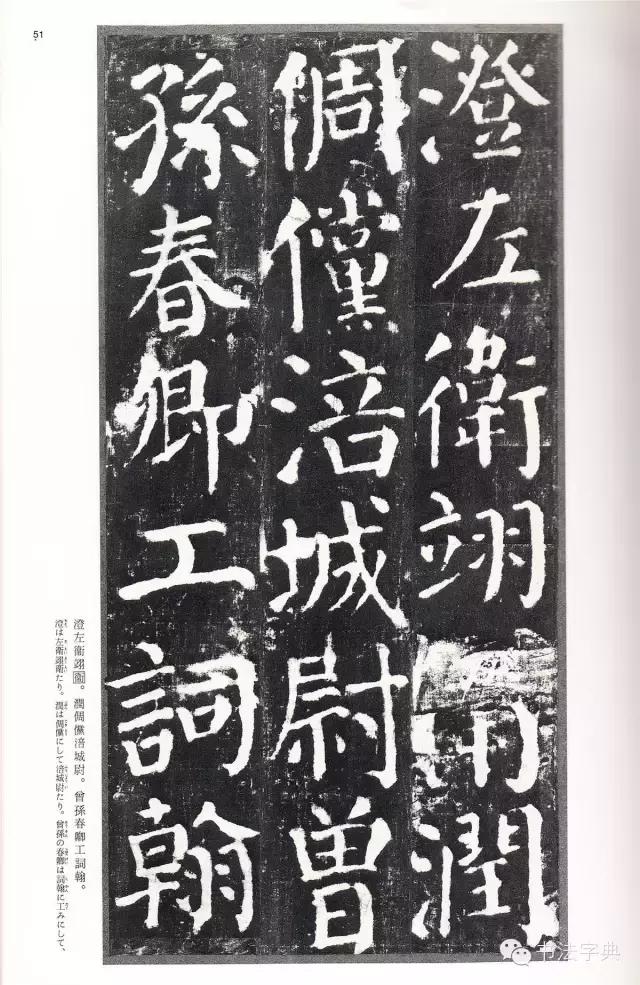 51
澄左衛翊潤
倜儻涪城尉曽
孫春卿工詞翰
澄左衛翊衛。潤倜儻涪城尉。曾孫春卿工詞翰。
澄は左衛翊衛たり。潤は倜儻にして涪城尉たり。曾孫の春卿は詞翰に工みにして、
书法字典